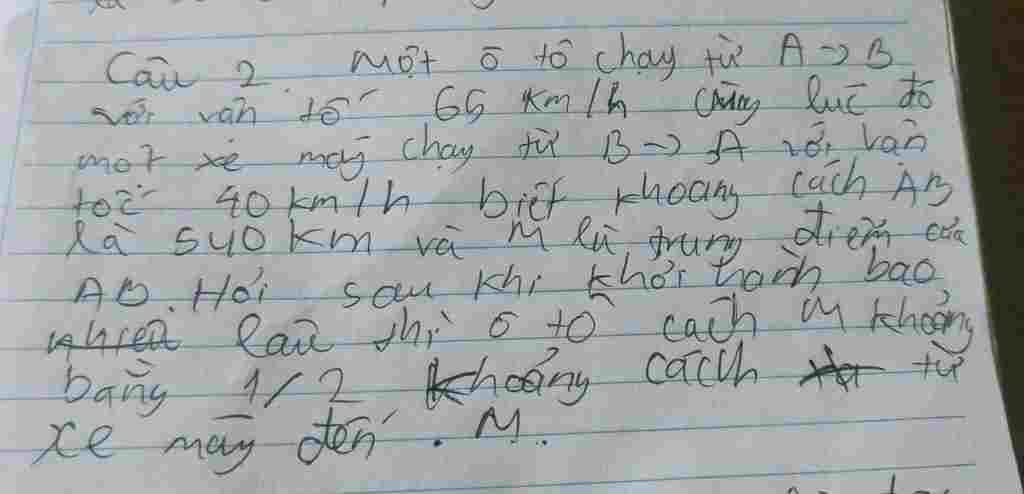 Câu 2. Một ô tô chạy từ A -> B
với vận tố 65 km/h cùng lúc đó
một xe máy chạy từ B -> A với vận
tốc 40 km/h biết khoảng cách AB
là 540 km và M là trung điểm của
AB. Hỏi sau khi khởi hành bao
nhiêu lâu thì ô tô cách M khoảng
bằng 1/2 khoảng cách từ
xe máy đến M.